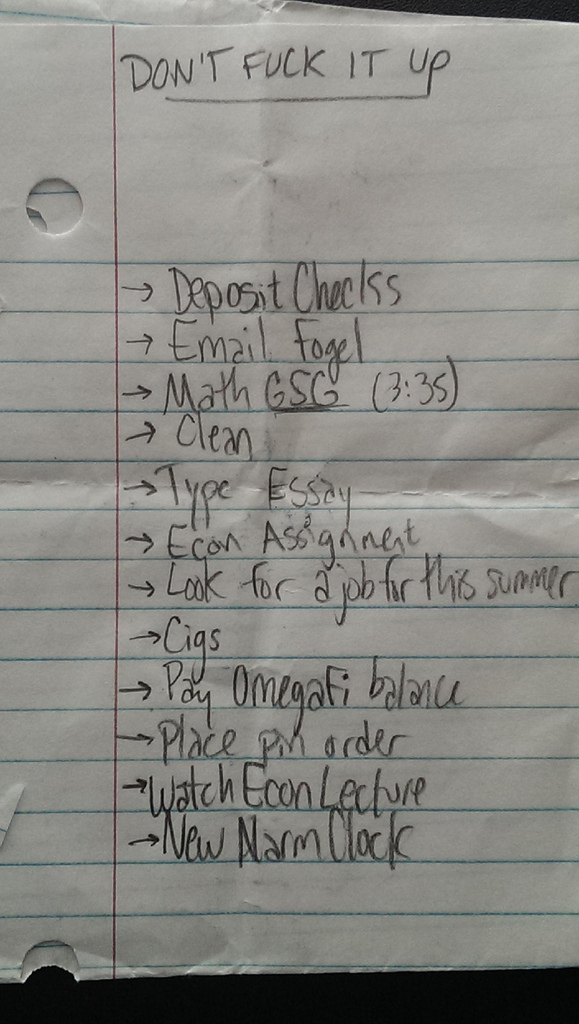 DON'T FUCK IT UP
→ Deposit Checks
→ Email Fogel
→ Math GSG (3:35)
→ Clean
→ Type Essay
→ Econ Assignment
→ Look for a job for this summer
→ Cigs
→ Pay OmegaFi balance
→ Place pin order
→ Watch Econ Lecture
→ New Alarm Clock